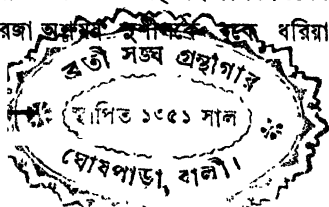 ধরিয়া
ব্রতী সঙ্ঘ গ্রন্থাগার
স্থাপিত ১৩৫১ সাল
ঘোষপাড়া, বালী।